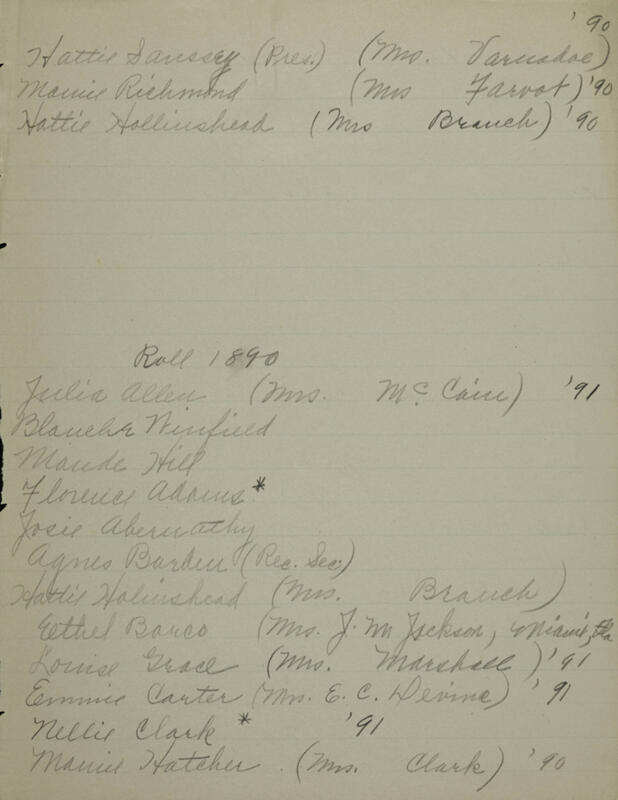 '90
Hattie Saussey (Pres.) (Mrs. Varnadoe)
Mamie Richmond (Mrs Farvot) '90
Hattie Hollinshead (Mrs Branch) '90
Roll 1890
Julia Allen (Mrs. McCain) '91
Blanche Winfield
Maude Hill
Florence Adams *
Josie Abernathy
Agnes Barden (Rec. Sec)
Hattie Holinshead (Mrs. Branch)
Eethel Barco (Mrs. J. M Jackson, Miami, Fla
Louise Grace (Mrs. Marshall) '91
Emmie Carter (Mrs. E. C. Devine) '91
Nellie Clark * '91
Mamie Hatcher (Mrs. Clark) '90